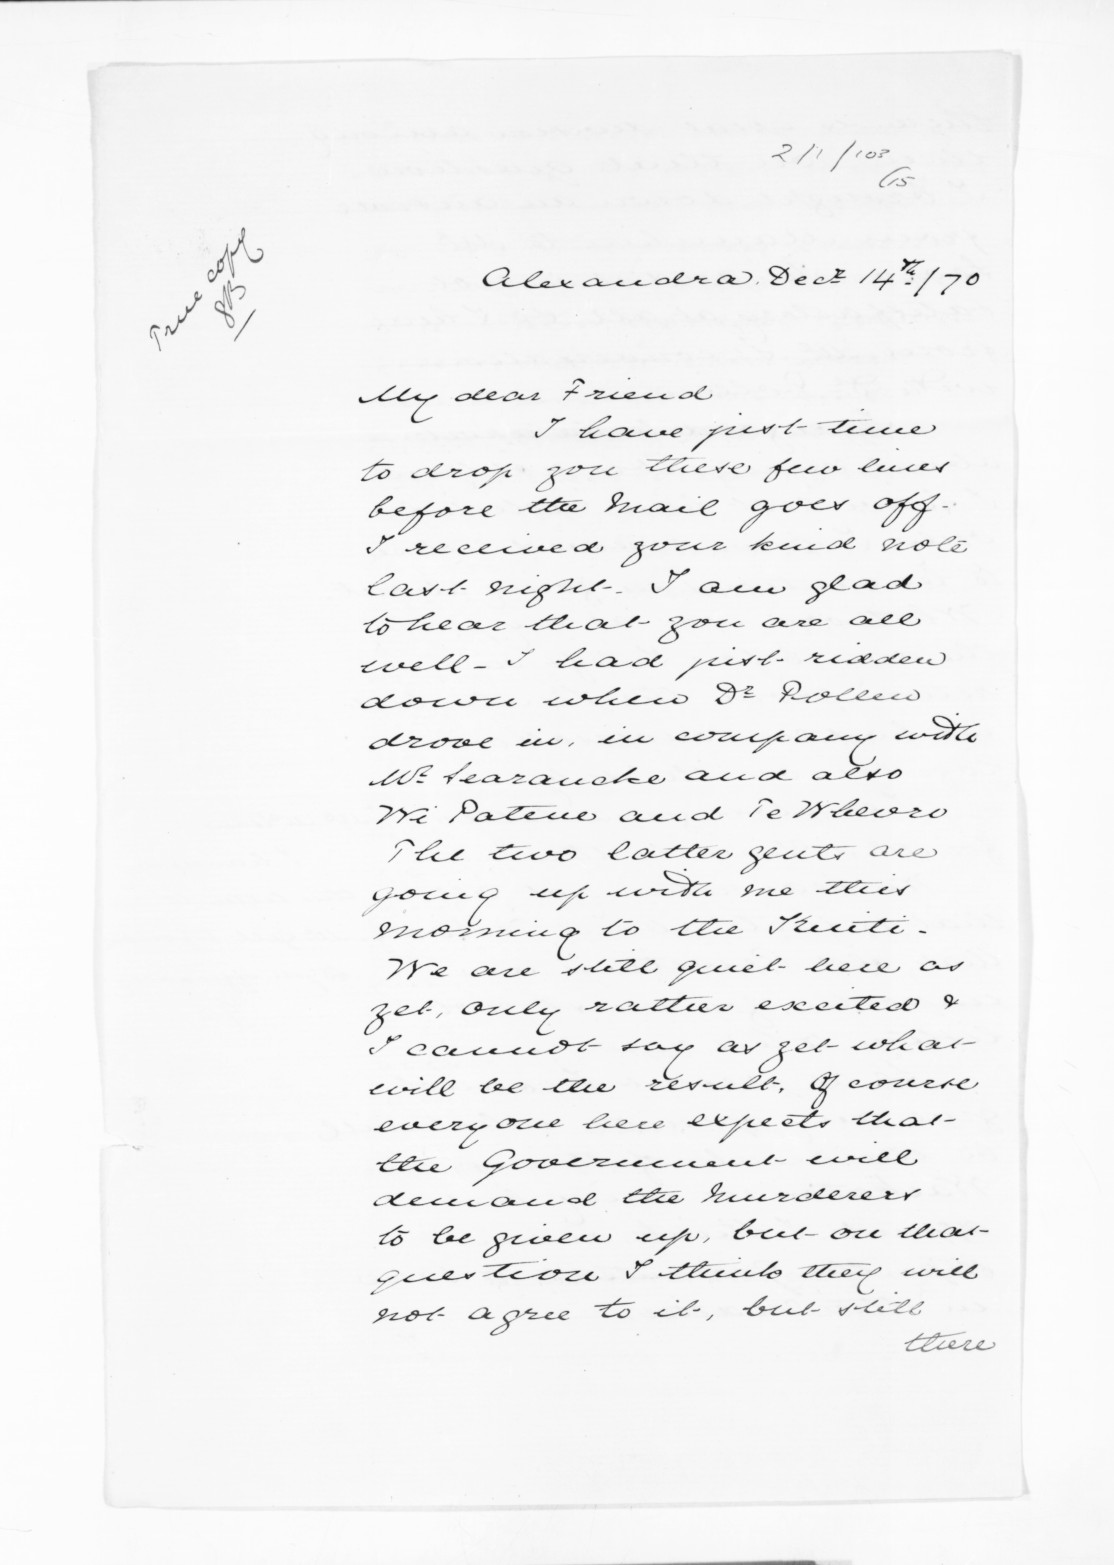 2/1/103
/15
True copy
Alexandra. Decr 14th/70
My dear Friend
I have just time
to drop you these few lines
before the Mail goes off-
I received your kind note
last night. I am glad
to hear that you are all
well - I had just ridden
down when Dr Pollen
drove in, in company with
Mr Searancke and also
Wi Patene and Te Wheoro
The two latter gents are
going up with me this
morning to the Kuiti.
We are still quiet here as
yet, only rather excited &
I cannot say as yet what
will be the result. Of course
everyone here expects that
the Government will
demand the Murderers
to be given up, but on that
question I think they will
not agree to it, but still
there